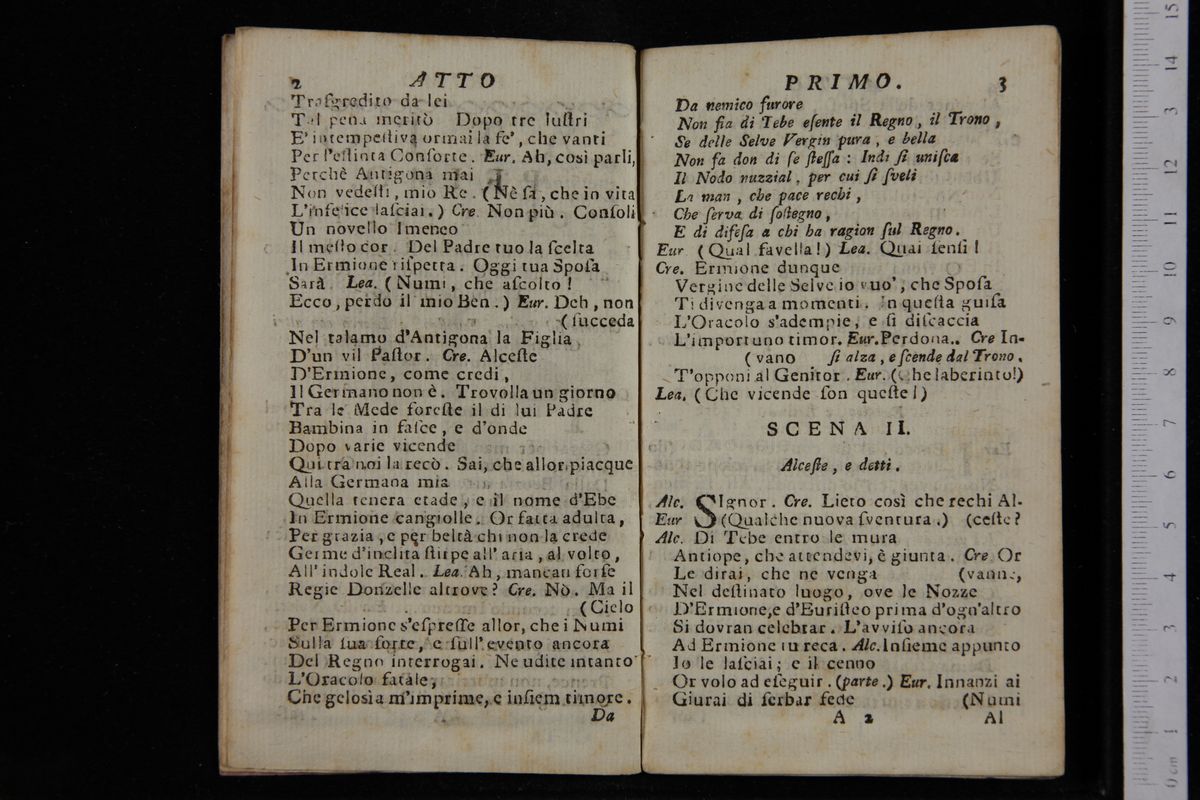 2 ATTO
Traſgredito da lei
Tal pena meritò Dopo tre luſtri
E' intempeſtiva ormai la fe', che vanti
Per l'eſtinta Conſorte. Eur. Ah, così parli,
Perchè Antigona mai
Non vedeſti, mio Re. (Nè ſa, che in vita
L'infelice laſciai.) Cre. Non più. Conſoli
Un novello Imeneo
Il meſto cor. Del Padre tuo la ſcelta
In Ermione riſpetta. Oggi tua Spoſa
Sarà. Lea. (Numi, che aſcolto!
Ecco, perdo il mio Ben.) Eur. Deh, non
(ſucceda
Nel talamo d'Antigona la Figlia
D'un vil Paſtor. Cre. Alceſte
D'Ermione, come credi,
Il Germano non è. Trovolla un giorno
Tra le Mede foreſte il di lui Padre
Bambina in faſce, e d'onde
Dopo varie vicende
Qui tra noi la recò. Sai, che allor piacque
Alla Germana mia
Quella tenera etade, e il nome d'Ebe
In Ermione cangiolle. Or fatta adulta,
Per grazia, e per beltà chi non la crede
Germe d'inclita ſtirpe all' aria, al volto,
All' indole Real. Lea. Ah, mancan forſe
Regie Donzelle altrove? Cre. Nò. Ma il
(Cielo
Per Ermione s'eſpreſſe allor, che i Numi
Sulla ſua ſorte, e ſull' evento ancora
Del Regno interrogai. Ne udite intanto
L'Oracolo fatale,
Che gelosìa m'imprime, e inſiem timore.
Da
PRIMO. 3
Da nemico furore
Non fia di Tebe eſente il Regno, il Trono,
Se delle Selve Vergin pura, e bella
Non fa don di ſe ſteſſa: Indi ſi uniſca
Il Nodo nuzzial, per cui ſi ſveli
La man, che pace rechi,
Che ſerva di ſoſtegno,
E di difeſa a chi ha ragion ſul Regno.
Eur (Qual favella!) Lea. Quai ſenſi!
Cre. Ermione dunque
Vergine delle Selve io vuo', che Spoſa
Ti divenga a momenti. In queſta guiſa
L'Oracolo s'adempie, e ſi diſcaccia
L'importuno timor. Eur. Perdona.. Cre In-
(vano ſi alza, e ſcende dal Trono.
T'opponi al Genitor. Eur. (Che laberinto!)
Lea. (Che vicende ſon queſte!)
SCENA II.
Alceſte, e detti.
Alc. SIgnor. Cre. Lieto così che rechi Al-
Eur (Qualche nuova ſventura.) (ceſte?
Alc. Di Tebe entro le mura
Antiope, che attendevi, è giunta. Cre Or
Le dirai, che ne venga (vanne,
Nel deſtinato luogo, ove le Nozze
D'Ermione, e d'Euriſteo prima d'ogn'altro
Si dovran celebrar. L'avviſo ancora
Ad Ermione tu reca. Alc. Inſieme appunto
Io le laſciai; e il cenno
Or volo ad eſeguir. (parte.) Eur. Innanzi ai
Giurai di ſerbar fede (Numi
A 2 Al